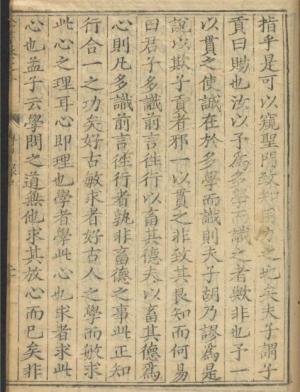 指乎是可以窺聖門致知用力之地矣夫子謂子
貢曰賜也汝以予為多學而識之者歟非也予一
以貫之使誠在於多學而識則夫子胡乃謬為是
說以欺子貢者邪一以貫之非致其良知而何易
曰君子多識前言徃行以畜其德夫以畜其德為
心則凡多識前言徃行者孰非畜德之事此正知
行合一之功矣好古敏求者好古人之學而敏求
此心之理耳心即理也學者學此心也求者求此
心也孟子云學問之道無他求其放心而已矣非